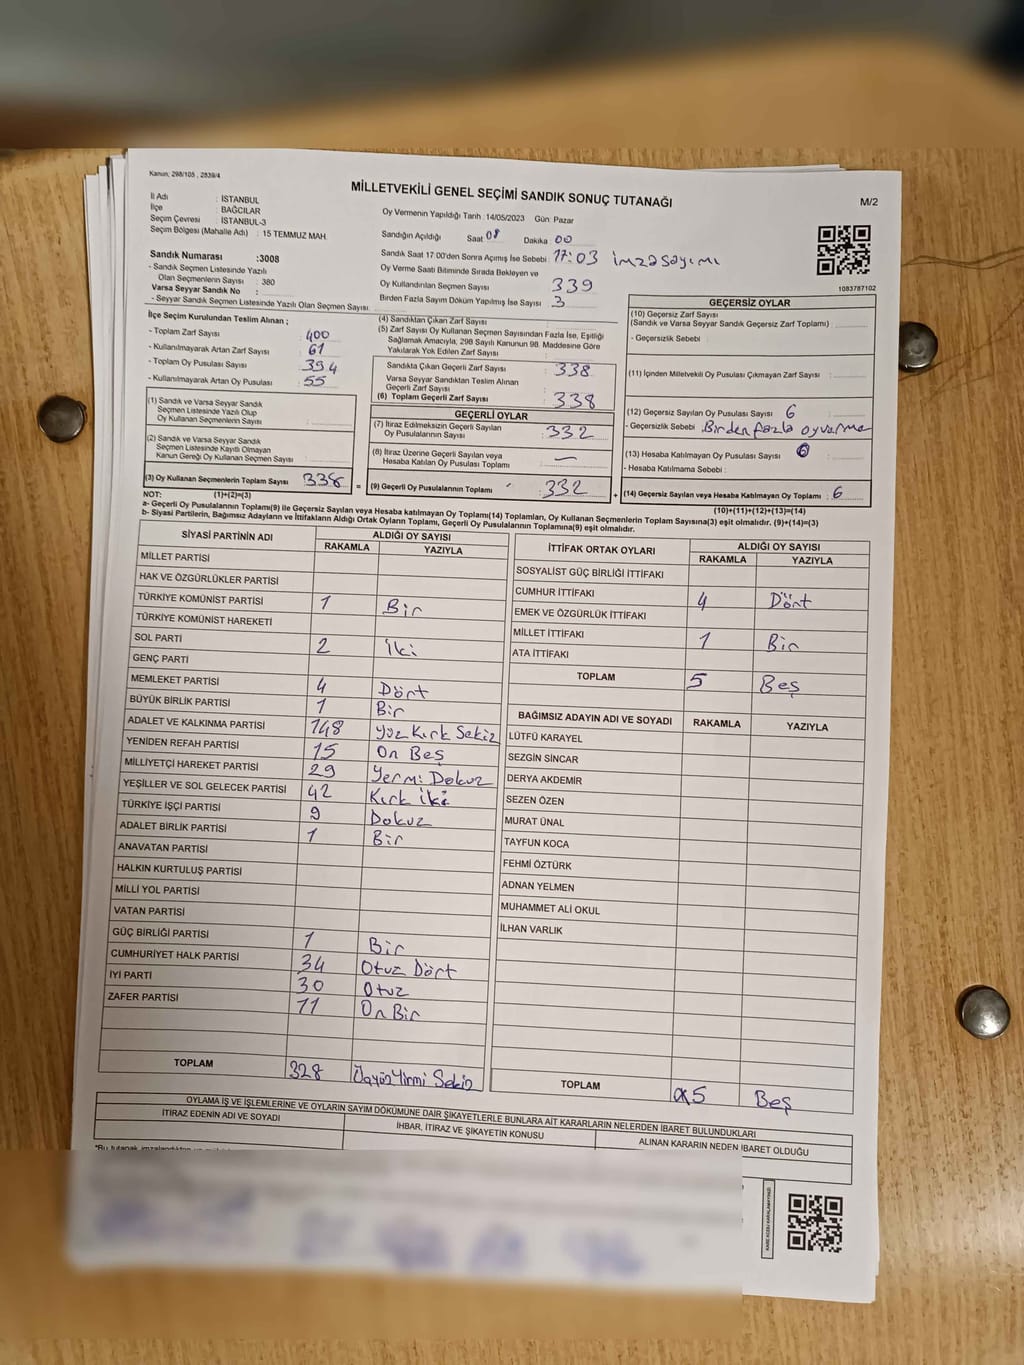 Kanun; 298/105 , 2839/4
MİLLETVEKİLİ GENEL SEÇİMİ SANDIK SONUÇ TUTANAĞI
M/2
İl Adı : İSTANBUL
İlçe : BAĞCILAR
Seçim Çevresi : İSTANBUL-3
Seçim Bölgesi (Mahalle Adı) : 15 TEMMUZ MAH.
Oy Vermenin Yapıldığı Tarih :14/05/2023 Gün: Pazar
Sandığın Açıldığı Saat 08 Dakika 00
Sandık Saat 17:00'den Sonra Açımış İse Sebebi : 17:03 imza sayımı
Oy Verme Saati Bitiminde Sırada Bekleyen ve
Oy Kullandırılan Seçmen Sayısı : 339
Birden Fazla Sayım Döküm Yapılmış İse Sayısı : 3
1083787102
Sandık Numarası :3008
- Sandık Seçmen Listesinde Yazılı
Olan Seçmenlerin Sayısı : 380
Varsa Seyyar Sandık No :
- Seyyar Sandık Seçmen Listesinde Yazılı Olan Seçmen Sayısı:
İlçe Seçim Kurulundan Teslim Alınan ;
- Toplam Zarf Sayısı : 400
- Kullanılmayarak Artan Zarf Sayısı : 61
- Toplam Oy Pusulası Sayısı : 394
- Kullanılmayarak Artan Oy Pusulası : 55
(1) Sandık ve Varsa Seyyar Sandık
Seçmen Listesinde Yazılı Olup
Oy Kullanan Seçmenlerin Sayısı :
(2) Sandık ve Varsa Seyyar Sandık
Seçmen Listesinde Kayıtlı Olmayan
Kanun Gereği Oy Kullanan Seçmen Sayısı :
(3) Oy Kullanan Seçmenlerin Toplam Sayısı : 338
(4) Sandıktan Çıkan Zarf Sayısı :
(5) Zarf Sayısı Oy Kullanan Seçmen Sayısından Fazla İse, Eşitliği
Sağlamak Amacıyla, 298 Sayılı Kanunun 98. Maddesine Göre
Yakılarak Yok Edilen Zarf Sayısı :
Sandıkta Çıkan Geçerli Zarf Sayısı : 338
Varsa Seyyar Sandıktan Teslim Alınan
Geçerli Zarf Sayısı :
(6) Toplam Geçerli Zarf Sayısı : 338
GEÇERLİ OYLAR
(7) İtiraz Edilmeksizin Geçerli Sayılan
Oy Pusulalarının Sayısı : 332
(8) İtiraz Üzerine Geçerli Sayılan veya
Hesaba Katılan Oy Pusulası Toplamı : —
= (9) Geçerli Oy Pusulalarının Toplamı : 332
GEÇERSİZ OYLAR
(10) Geçersiz Zarf Sayısı
(Sandık ve Varsa Seyyar Sandık Geçersiz Zarf Toplamı) :
- Geçersizlik Sebebi :
(11) İçinden Milletvekili Oy Pusulası Çıkmayan Zarf Sayısı :
(12) Geçersiz Sayılan Oy Pusulası Sayısı : 6
- Geçersizlik Sebebi : Birden fazla oy varma
(13) Hesaba Katılmayan Oy Pusulası Sayısı :
- Hesaba Katılmama Sebebi :
+ (14) Geçersiz Sayılan veya Hesaba Katılmayan Oy Toplamı : 6
NOT: (1)+(2)=(3)
(10)+(11)+(12)+(13)=(14)
a- Geçerli Oy Pusulalarının Toplamı(9) ile Geçersiz Sayılan veya Hesaba Katılmayan Oy Toplamı(14) Toplamları, Oy Kullanan Seçmenlerin Toplam Sayısına(3) eşit olmalıdır. (9)+(14)=(3)
b- Siyasi Partilerin, Bağımsız Adayların ve İttifakların Aldığı Ortak Oyların Toplamı, Geçerli Oy Pusulalarının Toplamına(9) eşit olmalıdır.
SİYASİ PARTİNİN ADI ALDIĞI OY SAYISI
RAKAMLA YAZIYLA
MİLLET PARTİSİ
HAK VE ÖZGÜRLÜKLER PARTİSİ
TÜRKİYE KOMÜNİST PARTİSİ 1 Bir
TÜRKİYE KOMÜNİST HAREKETİ
SOL PARTİ 2 İki
GENÇ PARTİ
MEMLEKET PARTİSİ 4 Dört
BÜYÜK BİRLİK PARTİSİ 1 Bir
ADALET VE KALKINMA PARTİSİ 148 Yüz Kırk Sekiz
YENİDEN REFAH PARTİSİ 15 On Beş
MİLLİYETÇİ HAREKET PARTİSİ 29 Yermi Dokuz
YEŞİLLER VE SOL GELECEK PARTİSİ 42 Kırk İki
TÜRKİYE İŞÇİ PARTİSİ 9 Dokuz
ADALET BİRLİK PARTİSİ 1 Bir
ANAVATAN PARTİSİ
HALKIN KURTULUŞ PARTİSİ
MİLLİ YOL PARTİSİ
VATAN PARTİSİ
GÜÇ BİRLİĞİ PARTİSİ 1 Bir
CUMHURİYET HALK PARTİSİ 34 Otuz Dört
İYİ PARTİ 30 Otuz
ZAFER PARTİSİ 11 On Bir
TOPLAM 328 Üçyüz Yirmi Sekiz
İTTİFAK ORTAK OYLARI ALDIĞI OY SAYISI
RAKAMLA YAZIYLA
SOSYALİST GÜÇ BİRLİĞİ İTTİFAKI
CUMHUR İTTİFAKI 4 Dört
EMEK VE ÖZGÜRLÜK İTTİFAKI
MİLLET İTTİFAKI 1 Bir
ATA İTTİFAKI
TOPLAM 5 Beş
BAĞIMSIZ ADAYIN ADI VE SOYADI RAKAMLA YAZIYLA
LÜTFÜ KARAYEL
SEZGİN SİNCAR
DERYA AKDEMİR
SEZEN ÖZEN
MURAT ÜNAL
TAYFUN KOCA
FEHMİ ÖZTÜRK
ADNAN YELMEN
MUHAMMET ALİ OKUL
İLHAN VARLIK
TOPLAM 5 Beş
OYLAMA İŞ VE İŞLEMLERİNE VE OYLARIN SAYIM DÖKÜMÜNE DAİR ŞİKAYETLERLE BUNLARA AİT KARARLARIN NELERDEN İBARET BULUNDUKLARI
İTİRAZ EDENİN ADI VE SOYADI İHBAR, İTİRAZ VE ŞİKAYETİN KONUSU ALINAN KARARIN NEDEN İBARET OLDUĞU